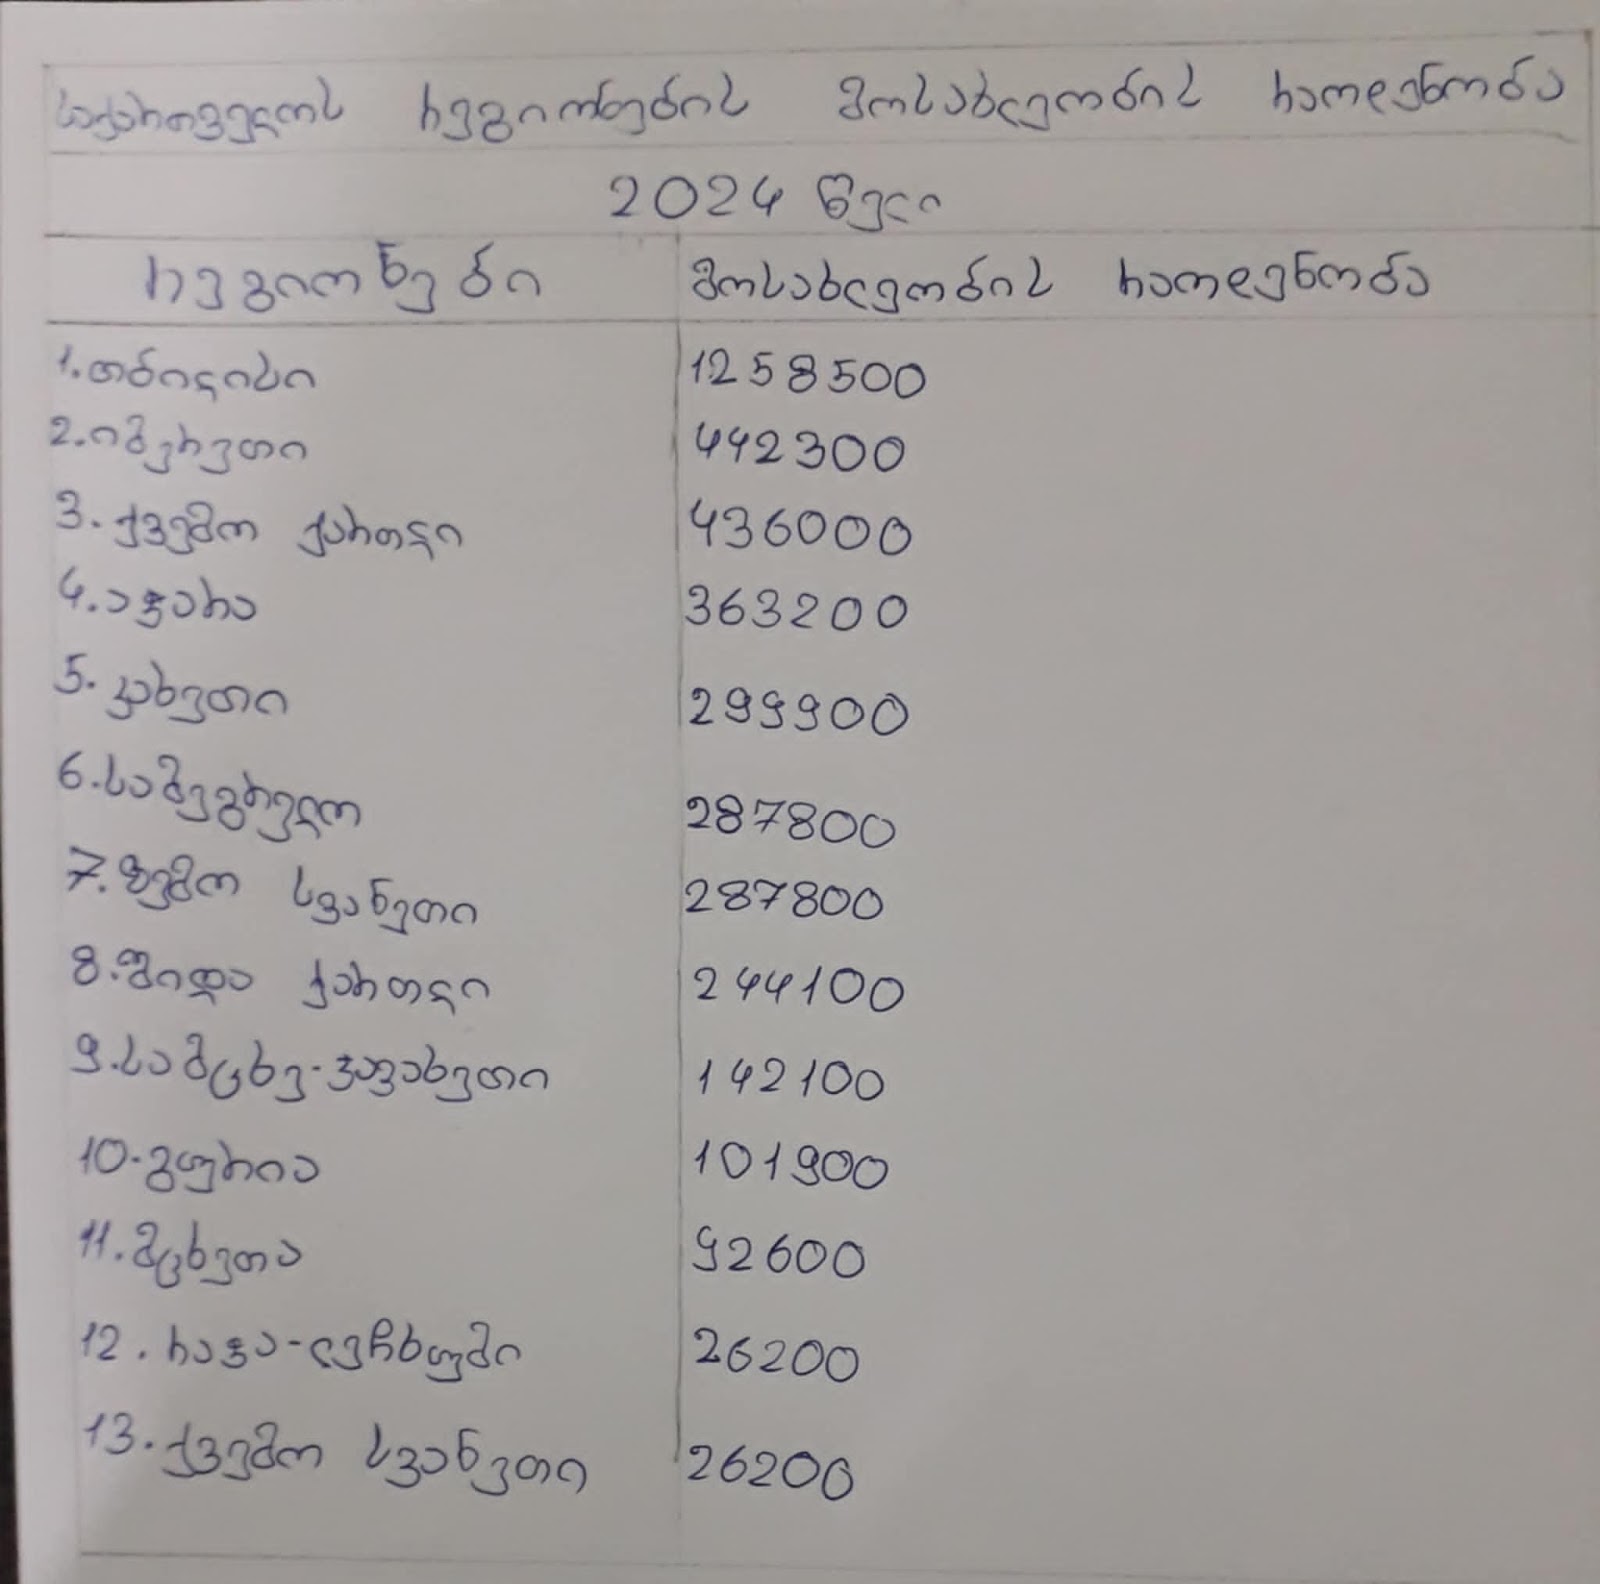 საქართველოს რეგიონების მოსახლეობის რაოდენობა
2024 წელი
რეგიონები მოსახლეობის რაოდენობა
1.თბილისი 1258500
2.იმერეთი 442300
3. ქვემო ქართლი 436000
4.აჭარა 363200
5. კახეთი 299900
6.სამეგრელო 287800
7.ზემო სვანეთი 287800
8.შიდა ქართლი 244100
9.სამცხე-ჯავახეთი 142100
10.გურია 101900
11.მცხეთა 92600
12. რაჭა-ლეჩხუმი 26200
13. ქვემო სვანეთი 26200